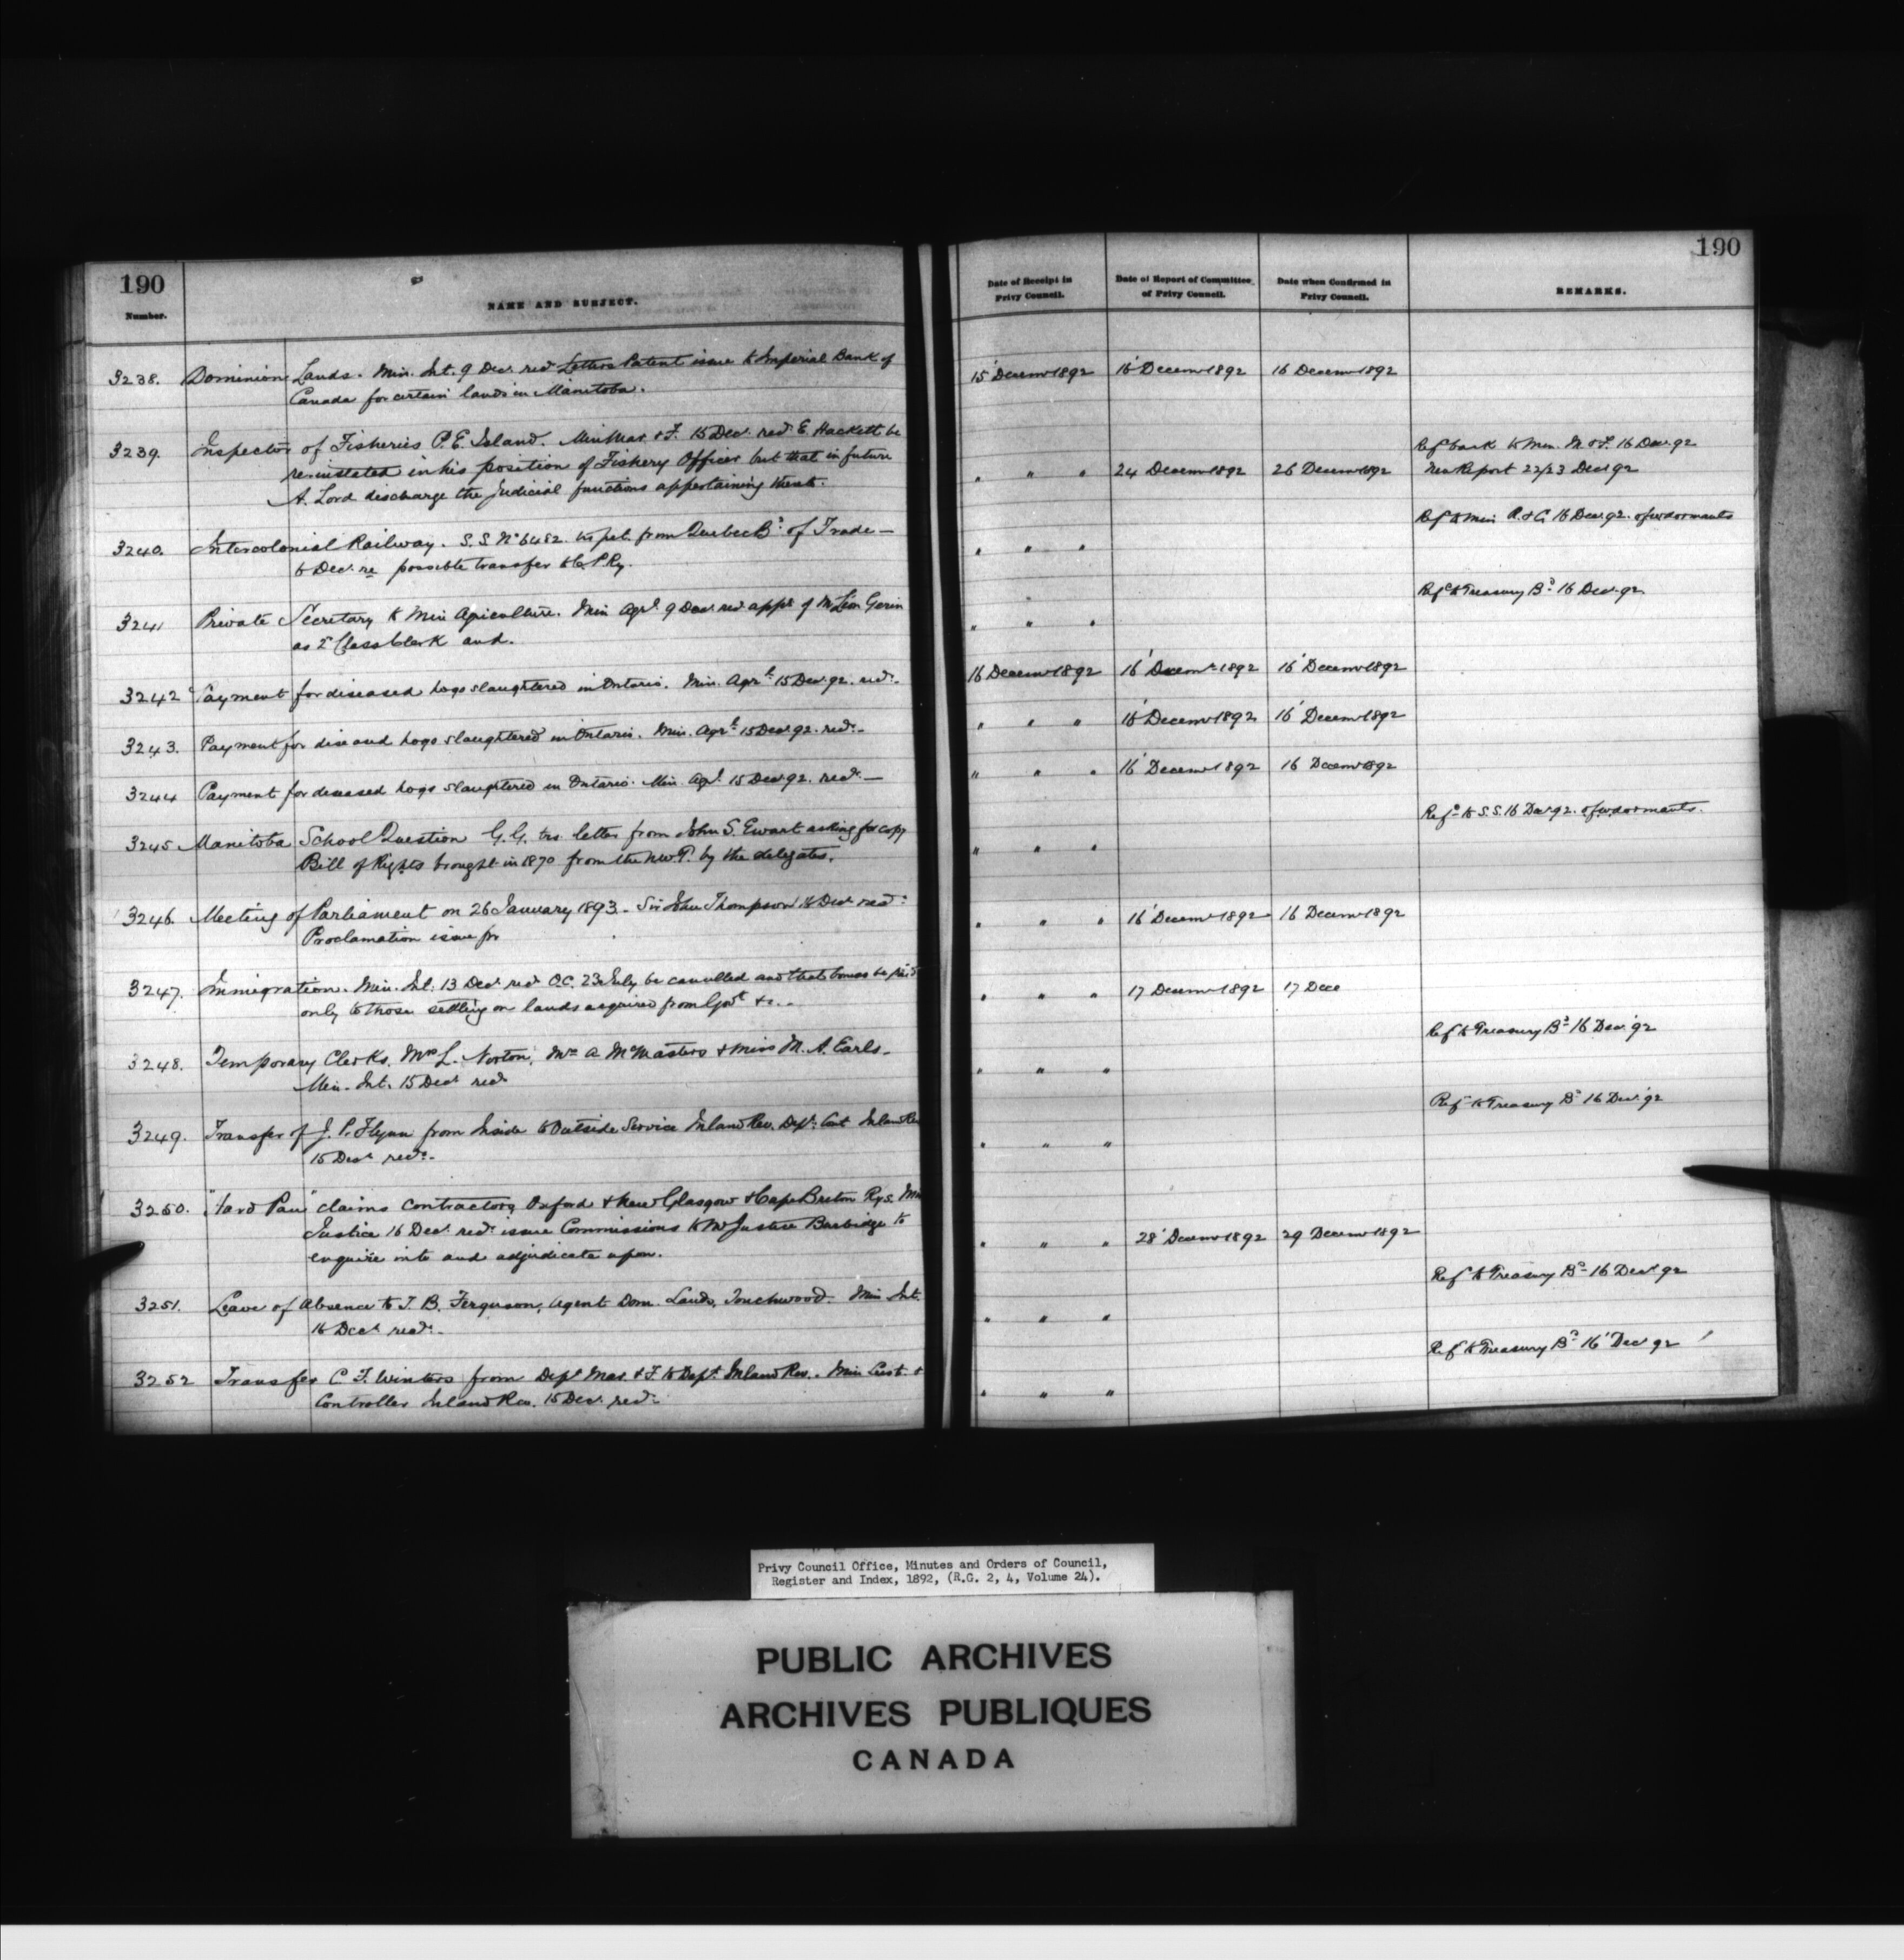 190
Number.
NAME AND SUBJECT.
3238. Dominion Lands. Min. Int. 9 Dec. recd Letters Patent issue to Imperial Bank of
Canada for certain lands in Manitoba.
3239. Inspector of Fisheries P.E. Island. Min Mar. & F. 15 Dec. recd E. Hackett be
re-instated in his position of Fishery Officer but that in future
A. Lord discharge the judicial functions appertaining thereto.
3240. Intercolonial Railway. S.S. No 6482. trs pet. from Quebec Bd of Trade —
6 Dec. re possible transfer to C.P.Ry.
3241 Private Secretary to Min Agriculture. Min Agrl. 9 Dec. recd appt of Mr Leon Gerin
as 2d Class Clerk and.
3242 Payment for diseased hogs slaughtered in Ontario. Min. Agrl. 15 Dec. 92. recd. -
3243. Payment for diseased hogs slaughtered in Ontario. Min. Agrl 15 Dec. 92. recd. -
3244 Payment for diseased hogs slaughtered in Ontario. Min. Agl. 15 Dec. 92. recd. —
3245 Manitoba School Question G.G. trs. letter from John S. Ewart asking for copy
Bill of Rights brought in 1870 from the N.W.T. by the delegates.
3246. Meeting of Parliament on 26 January 1893 - Sir John Thompson 16 Dec recd
Proclamation issue for
3247. Immigration. Min. Int. 13 Dec. recd O.C. 23 July be cancelled and that bonus be paid
only to those settling on lands acquired from Govt &c. -
3248. Temporary Clerks. Mrs L. Norton, Mrs A. McMasters & Miss M. A. Earls -
Min. Int. 15 Dec. recd
3249. Transfer of J. P. Flynn from Inside to Outside Service Inland Rev. Dept. Cont Inland Rev
15 Dec. recd. -
3250. "Hard Pan" claims contractors Oxford & New Glasgow & Cape Breton Rys. Min
Justice 16 Dec. recd. issue Commissions to Mr Justice Burbidge to
enquire into and adjudicate upon.
3251. Leave of Absence to T. B. Ferguson, Agent Dom. Lands, Touchwood. Min Int.
16 Dec. recd. -
3252 Transfer C F. Winters from Dept Mar. & F. to Dept. Inland Rev. Min Cust. &
Controller Inland Rev. 15 Dec. recd.
190
Date of Receipt in
Privy Council.
Date of Report of Committee
of Privy Council.
Date when Confirmed in
Privy Council.
REMARKS.
15 Decemr 1892 16 Decemr 1892 16 Decemr 1892
Ref back to Min. M & F. 16 Dec. 92
" " " 24 Decemr 1892 26 Decemr 1892 New Report 22/23 Dec 92
Ref to Min R. & C. 16 Dec. 92.
" " "
Refd to Treasury Bd 16 Dec. 92.
" " "
16 Decemr 1892 16 Decemr 1892 16 Decemr 1892
" " " 16 Decemr 1892 16 Decemr 1892
" " " 16 Decemr 1892 16 Decemr 1892
Refd to S.S. 16 Dec 92.
" " "
" " " 16 Decemr 1892 16 Decemr 1892
" " " 17 Decemr 1892 17 Dece
Ref to Treasury Bd 16 Dec. 92
" " "
Ref to Treasury Bd 16 Dec. 92
" " "
" " " 28 Decemr 1892 29 Decemr 1892
Ref to Treasury Bd 16 Dec. 92
" " "
Ref to Treasury Bd 16 Dec 92
" " "
Privy Council Office, Minutes and Orders of Council,
Register and Index, 1892, (R.G. 2, 4, Volume 24).
PUBLIC ARCHIVES
ARCHIVES PUBLIQUES
CANADA